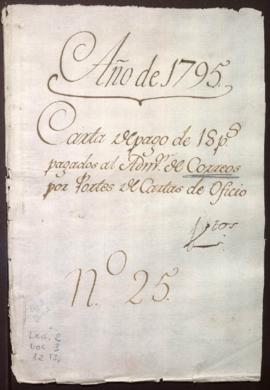 Año de 1795.
Carta de pago de 18 p.s
pagados al Adm.or de Correos
por Portes de Cartas de Oficio
N.º 25.
Leg. 2
Doc. 3